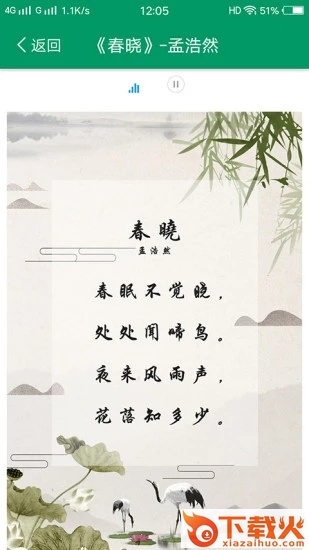 4G G 1.1K/s 12:05 HD 51%
返回 《春晓》-孟浩然
春曉
孟浩然
春眠不觉晓,
处处闻啼鸟。
夜来风雨声,
花落知多少。
下载火
xiazaihuo.com